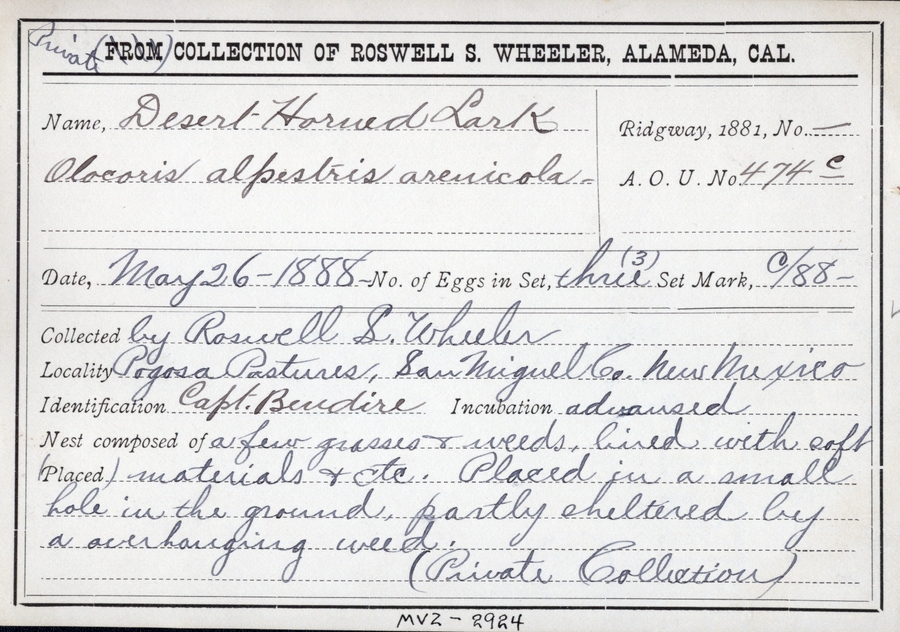 Private (FROM) COLLECTION OF ROSWELL S. WHEELER, ALAMEDA, CAL.
Name, Desert Horned Lark Ridgway, 1881, No. —
Otocoris alpestris arenicola - A. O. U. No. 474 c
Date, May 26 - 1888 - No. of Eggs in Set, three (3) Set Mark, c/88 -
Collected by Roswell S. Wheeler
Locality Pogosa Pastures, San Miguel Co. New Mexico
Identification Capt. Bendire Incubation advansed
Nest composed of a few grasses & weeds, lined with soft
(Placed) materials & etc. Placed in a small
hole in the ground, partly sheltered by
a overhanging weed.
(Private Collection)
MVZ - 2924